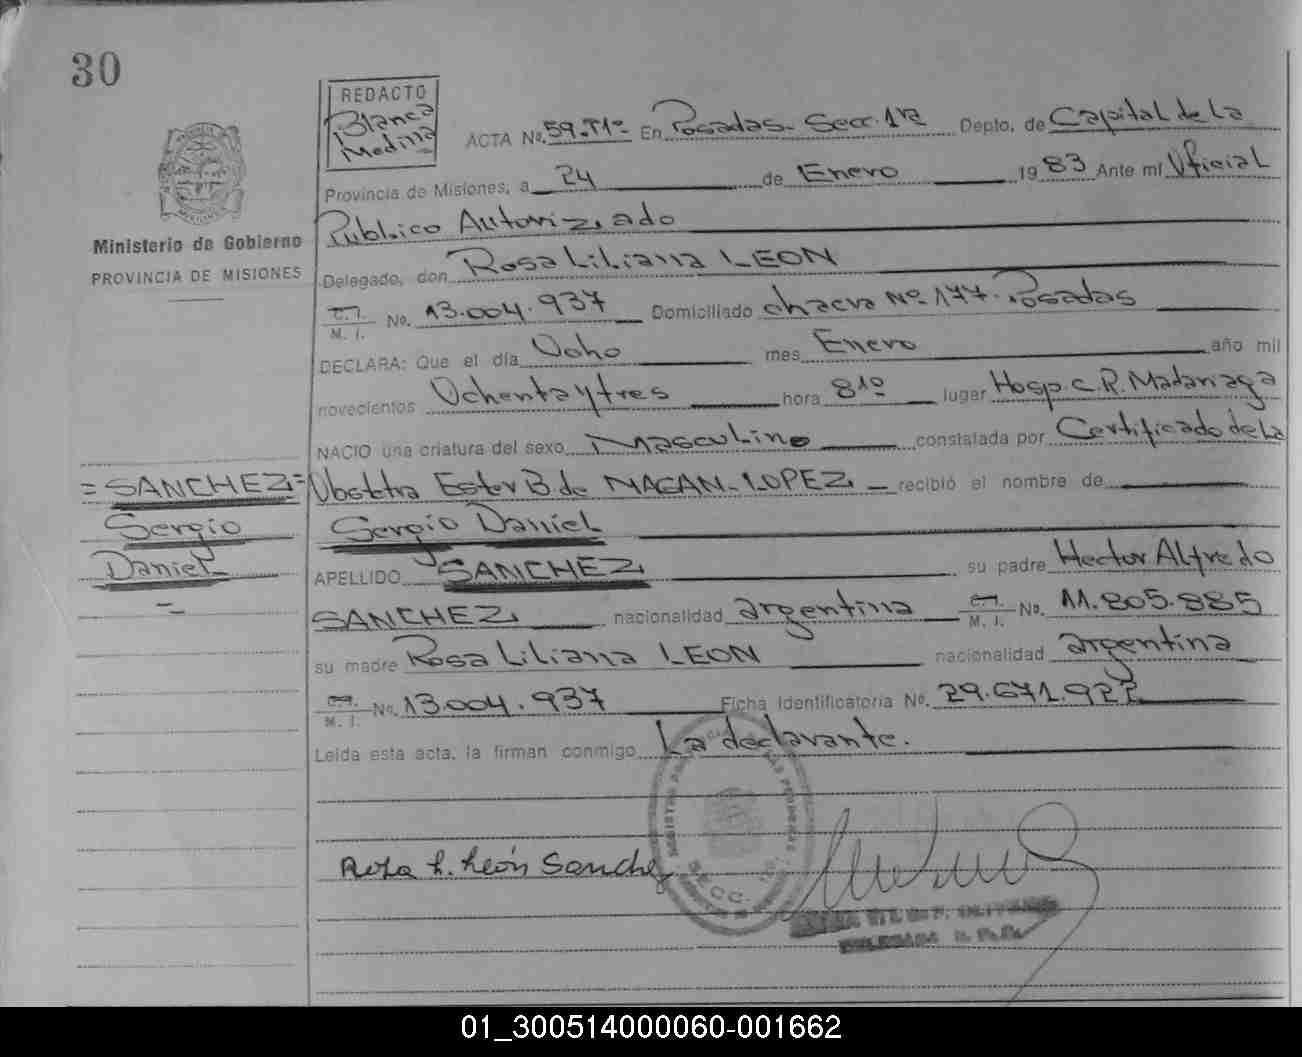 30
REDACTO
Blanca
Medina
ACTA No. 59. T1º En Posadas- Secc. 1ra Depto. de Capital de La
Provincia de Misiones, a 24 de Enero 1983 Ante mí Oficial
Público Autorizado
Ministerio de Gobierno
PROVINCIA DE MISIONES
Delegado, don Rosa Liliana LEON
C.I. M. I. No. 13.004.937 Domiciliado chacra Nº 177- Posadas
DECLARA: Que el día Ocho mes Enero año mil
novecientos Ochenta y tres hora 810 lugar Hosp. C. R. Madariaga
NACIO una criatura del sexo Masculino constatada por Certificado de La
Obstetra Ester B. de MACAN-LOPEZ recibió el nombre de
Sergio Daniel
=SANCHEZ=
Sergio
Daniel
APELLIDO SANCHEZ su padre Hector Alfredo
SANCHEZ nacionalidad argentina C.I. M. I. No. 11.805.885
su madre Rosa Liliana LEON nacionalidad argentina
C.I. M. I. No. 13.004.937 Ficha Identificatoria No. 29.671.922
Leída esta acta, la firman conmigo La declarante.
Rosa L. León Sanchez
SECC. 1ra.
01_300514000060-001662